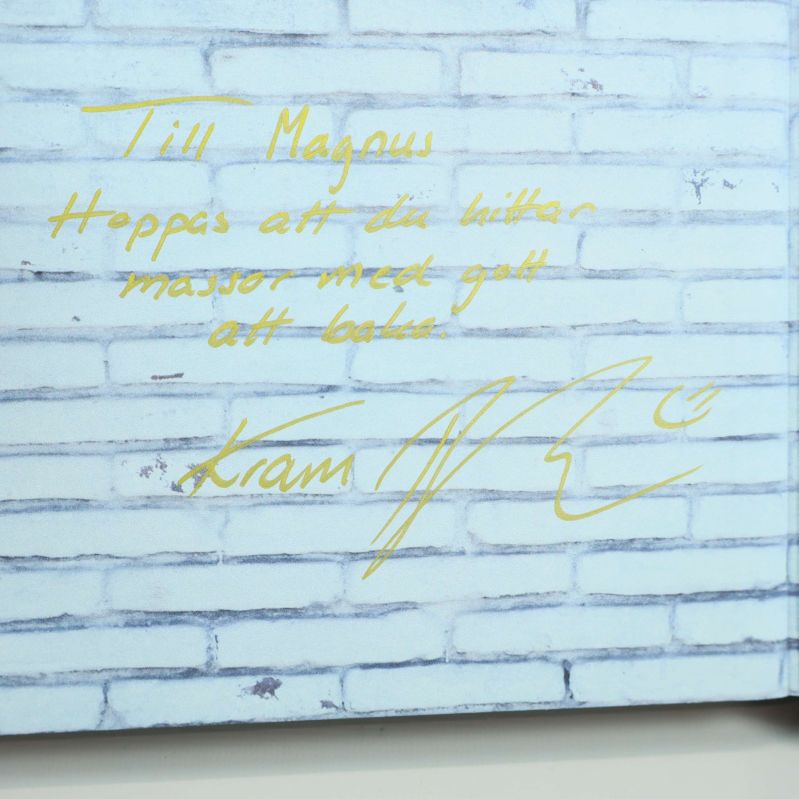 Till Magnus
Hoppas att du hittar
massor med gott
att baka.
Kram